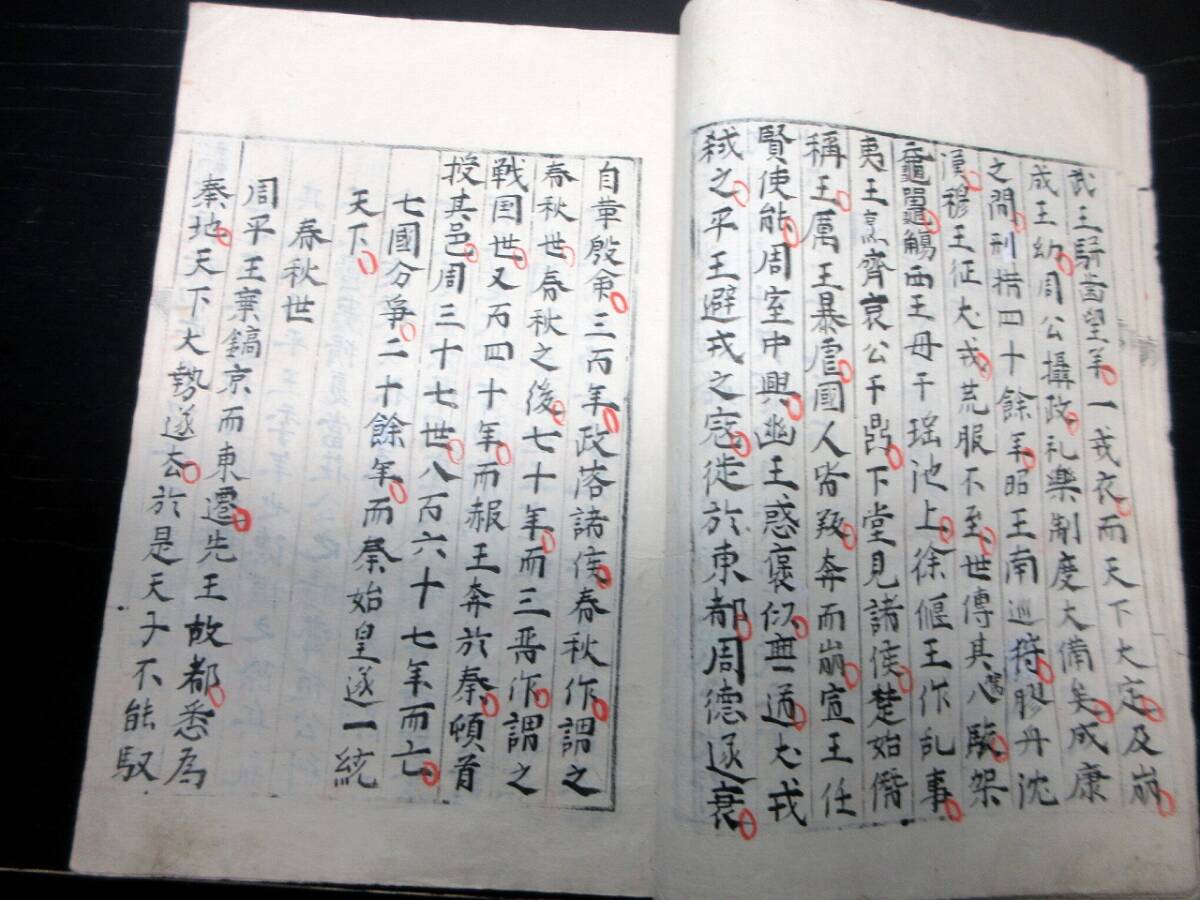 武王騈齒望羊一戎衣而天下大定及崩
成王幼周公攝政礼樂制度大備矣成康
之間刑措四十餘年昭王南巡狩膠舟沈
漢穆王征犬戎荒服不至世傳其八駿架
黿鼉觴西王母于瑤池上徐偃王作乱事
夷王烹齊哀公于鼎下堂見諸侯楚始僭
稱王厲王暴虐國人皆叛奔而崩宣王任
賢使能周室中興幽王惑褒似無道犬戎
弑之平王避戎之寇徙於東都周德遂衰
自革殷命三百年政落諸侯春秋作謂之
春秋世春秋之後七十年而三晋作謂之
戦国世又百四十年而赧王奔於秦頓首
授其邑周三十七世八百六十七年而亡
七國分爭二十餘年而秦始皇遂一統
天下
春秋世
周平王棄鎬京而東遷先王故都悉為
秦地天下大勢遂去於是天子不能馭